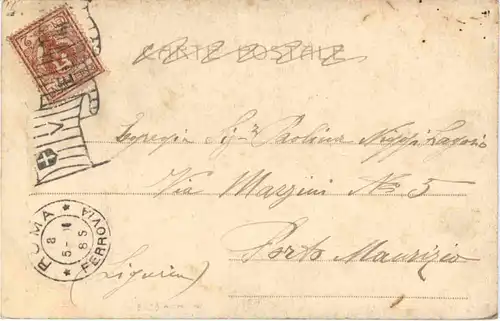 CARTE POSTALE
Egregia Sig.ra Paolina
Via Mazzini No 5
Porto Maurizio
(Liguria)
ROMA
FERROVIA
8
5-